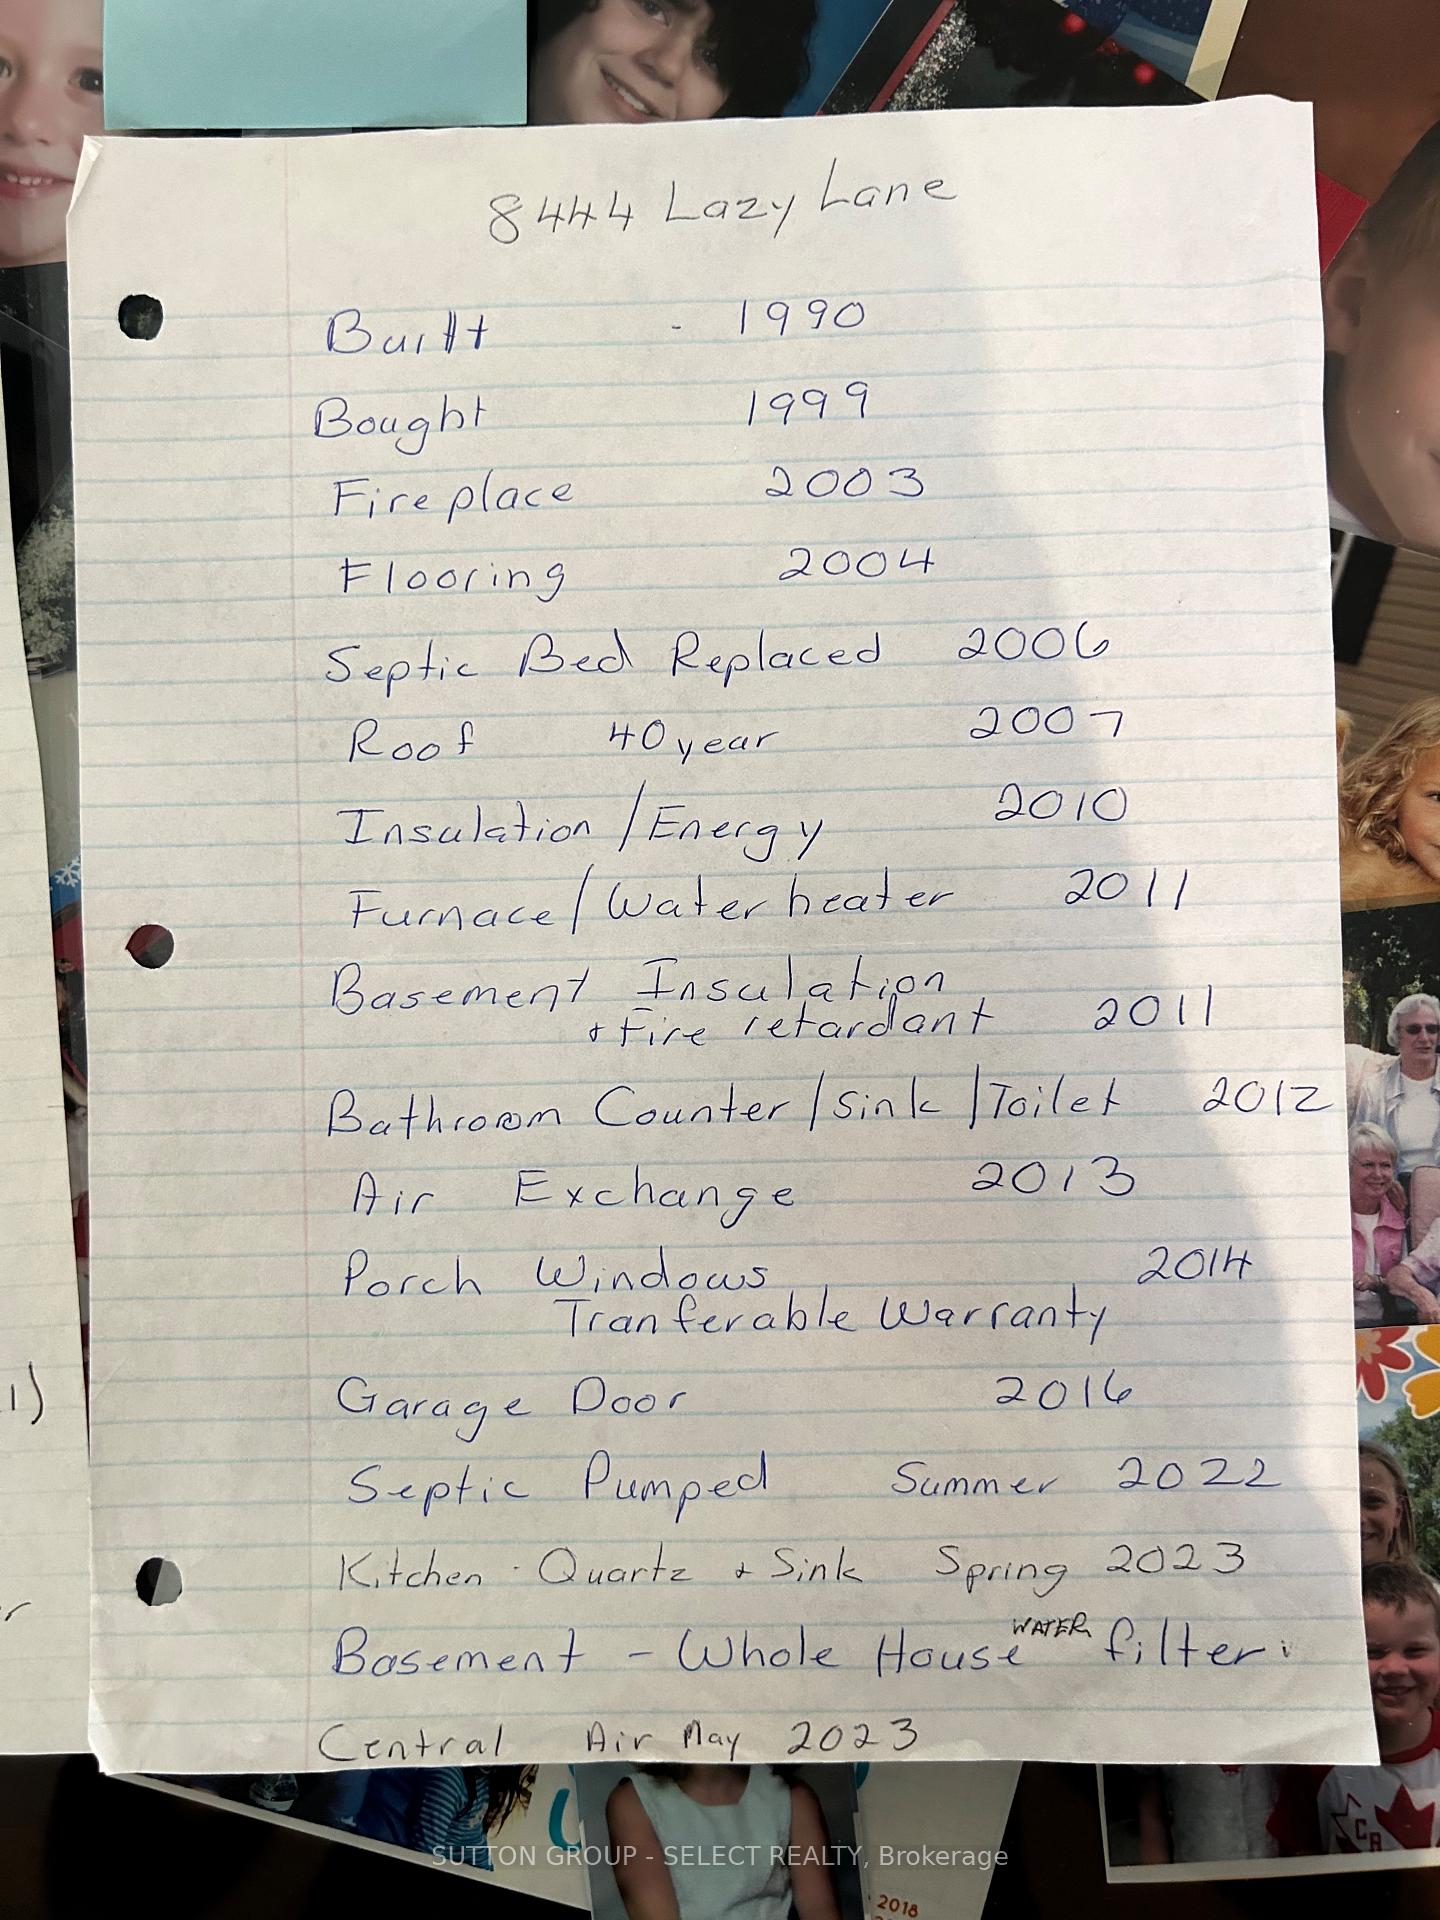 8444 Lazy Lane
Built - 1990
Bought 1999
Fireplace 2003
Flooring 2004
Septic Bed Replaced 2006
Roof 40 year 2007
Insulation / Energy 2010
Furnace / Water heater 2011
Basement Insulation
+ Fire retardant 2011
Bathroom Counter / Sink / Toilet 2012
Air Exchange 2013
Porch Windows 2014
Tranferable Warranty
Garage Door 2016
Septic Pumped Summer 2022
Kitchen - Quartz + Sink Spring 2023
Basement - Whole House WATER filter
Central Air May 2023
SUTTON GROUP - SELECT REALTY, Brokerage
2018